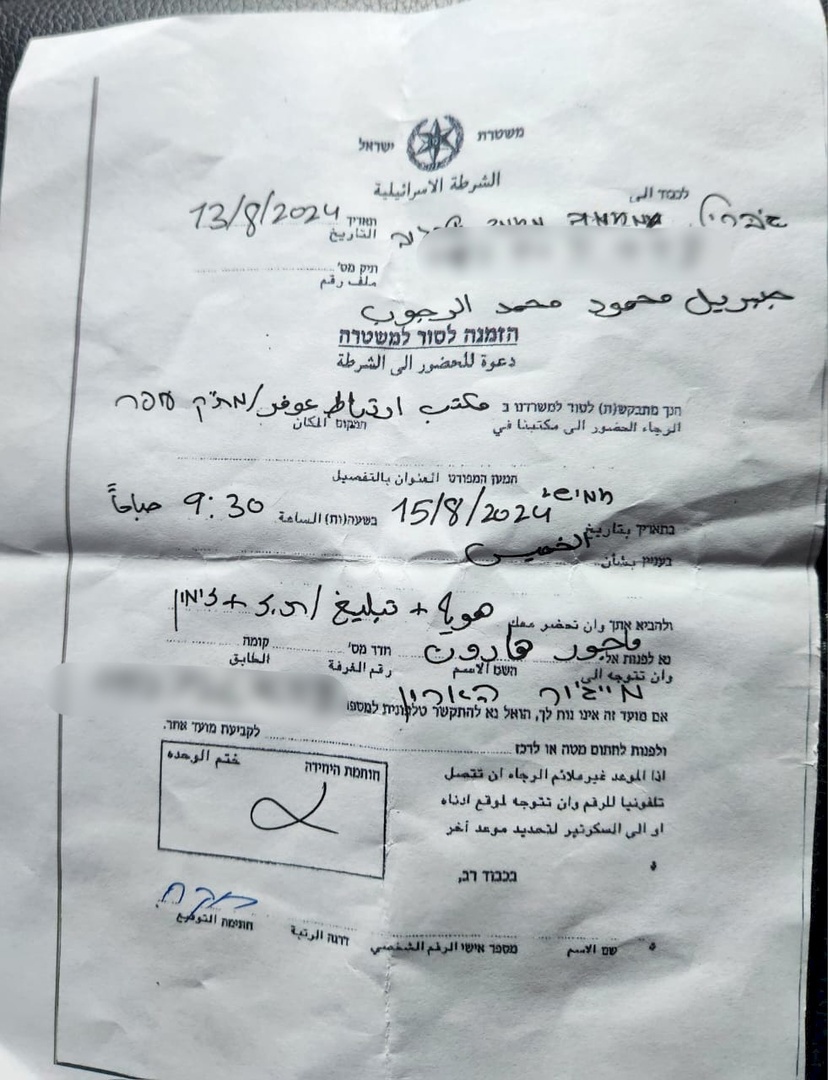 משטרת ישראל
الشرطة الاسرائيلية
לכבוד الى
תאריך 13/8/2024
التاريخ
תיק מס'
ملف رقم
جبريل محمود محمد الرجوب
הזמנה לסור למשטרה
دعوة للحضور الى الشرطة
הנך מתבקש(ת) לסור למשרדנו ב مكتب ارتباط عوفر/מת"ק עפר
الرجاء الحضور الى مكتبنا في המקום المكان
המען המפורט العنوان بالتفصيل
חמישי
בתאריך بتاريخ 15/8/2024 בשעה(ות) الساعة 9:30 صباحاً
الخميس
בעניין بشأن
ולהביא אתך وان تحضر معك هوية + تبليغ / ת.ז + זימון
נא לפנות אל ماجور هارون חדר מס' קומה
وان تتوجه الى השם الاسم رقم الغرفة الطابق
מייג'ור הארון
אם מועד זה אינו נוח לך, הואל נא להתקשר טלפונית למספר
ולפנות לחתום מטה או לרכז לקביעת מועד אחר.
اذا الموعد غير ملائم الرجاء ان تتصل
تلفونيا للرقم وان تتوجه لموقع ادناه
او الى السكرتير لتحديد موعد آخر
חותמת היחידה ختم الوحده
בכבוד רב,
שם الاسم מספר אישי الرقم الشخصي דרגה الرتبة חתימה التوقيع